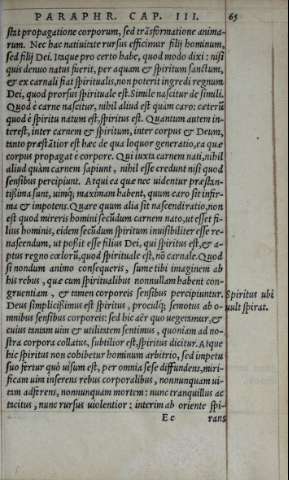 PARAPHR. CAP. III. 65
stat propagatione corporum, sed trãsformatione anima-
rum. Nec hac natiuitate rursus efficimur filij hominum,
sed filij Dei. Itaque pro certo habe, quod modo dixi: nisi
quis denuo natus fuerit, per aquam & spiritum sanctum,
& ex carnali fiat spiritualis, non poterit ingredi regnum
Dei, quod prorsus spirituale est. Simile nascitur de simili.
Quod è carne nascitur, nihil aliud est quàm caro: cæterũ
quod è spiritu natum est, spiritus est. Quantum autem in-
terest, inter carnem & spiritum, inter corpus & Deum,
tanto præstãtior est hæc de qua loquor generatio, ea quæ
corpus propagat è corpore. Qui iuxta carnem nati, nihil
aliud quàm carnem sapiunt, nihil esse credunt nisi quod
sensibus percipiunt. Atqui ea quæ nec uidentur præstan-
tissima sunt, uimq; maximam habent, quum caro sit infir-
ma & impotens. Quare quum alia sit nascendi ratio, non
est quod mireris homini secũdum carnem nato, ut esset fi-
lius hominis, eidem secũdum spiritum inuisibiliter esse re-
nascendum, ut possit esse filius Dei, qui spiritus est, & a-
ptus regno cœlorũ, quod spirituale est, nõ carnale. Quod
si nondum animo consequeris, sume tibi imaginem ab
his rebus, quæ cum spiritualibus nonnullam habent con-
gruentiam, & tamen corporeis sensibus percipiuntur.
Spiritus ubi
uult spirat.
Deus simplicissimus est spiritus, proculq; semotus ab o-
mnibus sensibus corporeis: sed hic aër quo uegetamur, &
cuius tantam uim & utilitatem sentimus, quoniam ad no-
stra corpora collatus, subtilior est, spiritus dicitur. Atque
hic spiritus non cohibetur hominum arbitrio, sed impetu
suo fertur quò uisum est, per omnia sese diffundens, miri-
ficam uim inserens rebus corporalibus, nonnunquam ui-
tam adferens, nonnunquam mortem: nunc tranquillus ac
tacitus, nunc rursus uiolentior: interim ab oriente spi-
E e rans